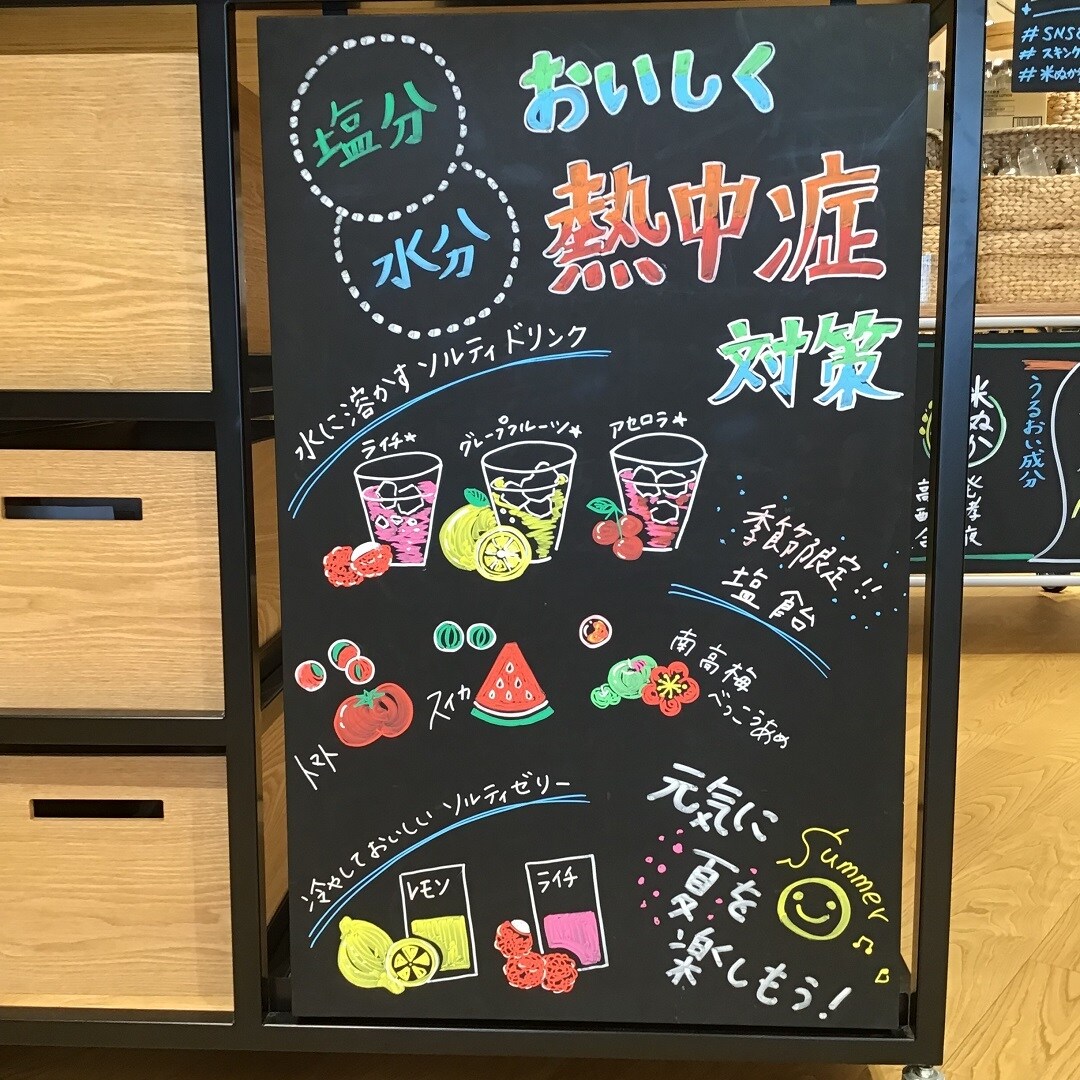 塩分
水分
おいしく
熱中症
対策
水に溶かすソルティドリンク
ライチ★
グレープフルーツ★
アセロラ★
季節限定!!
塩飴
トマト
スイカ
南高梅
べっこうあめ
冷やしておいしいソルティゼリー
レモン
ライチ
元気に
夏を
楽しもう!
Summer
#スキンケ
#米ぬか
米ぬか
うるおい成分